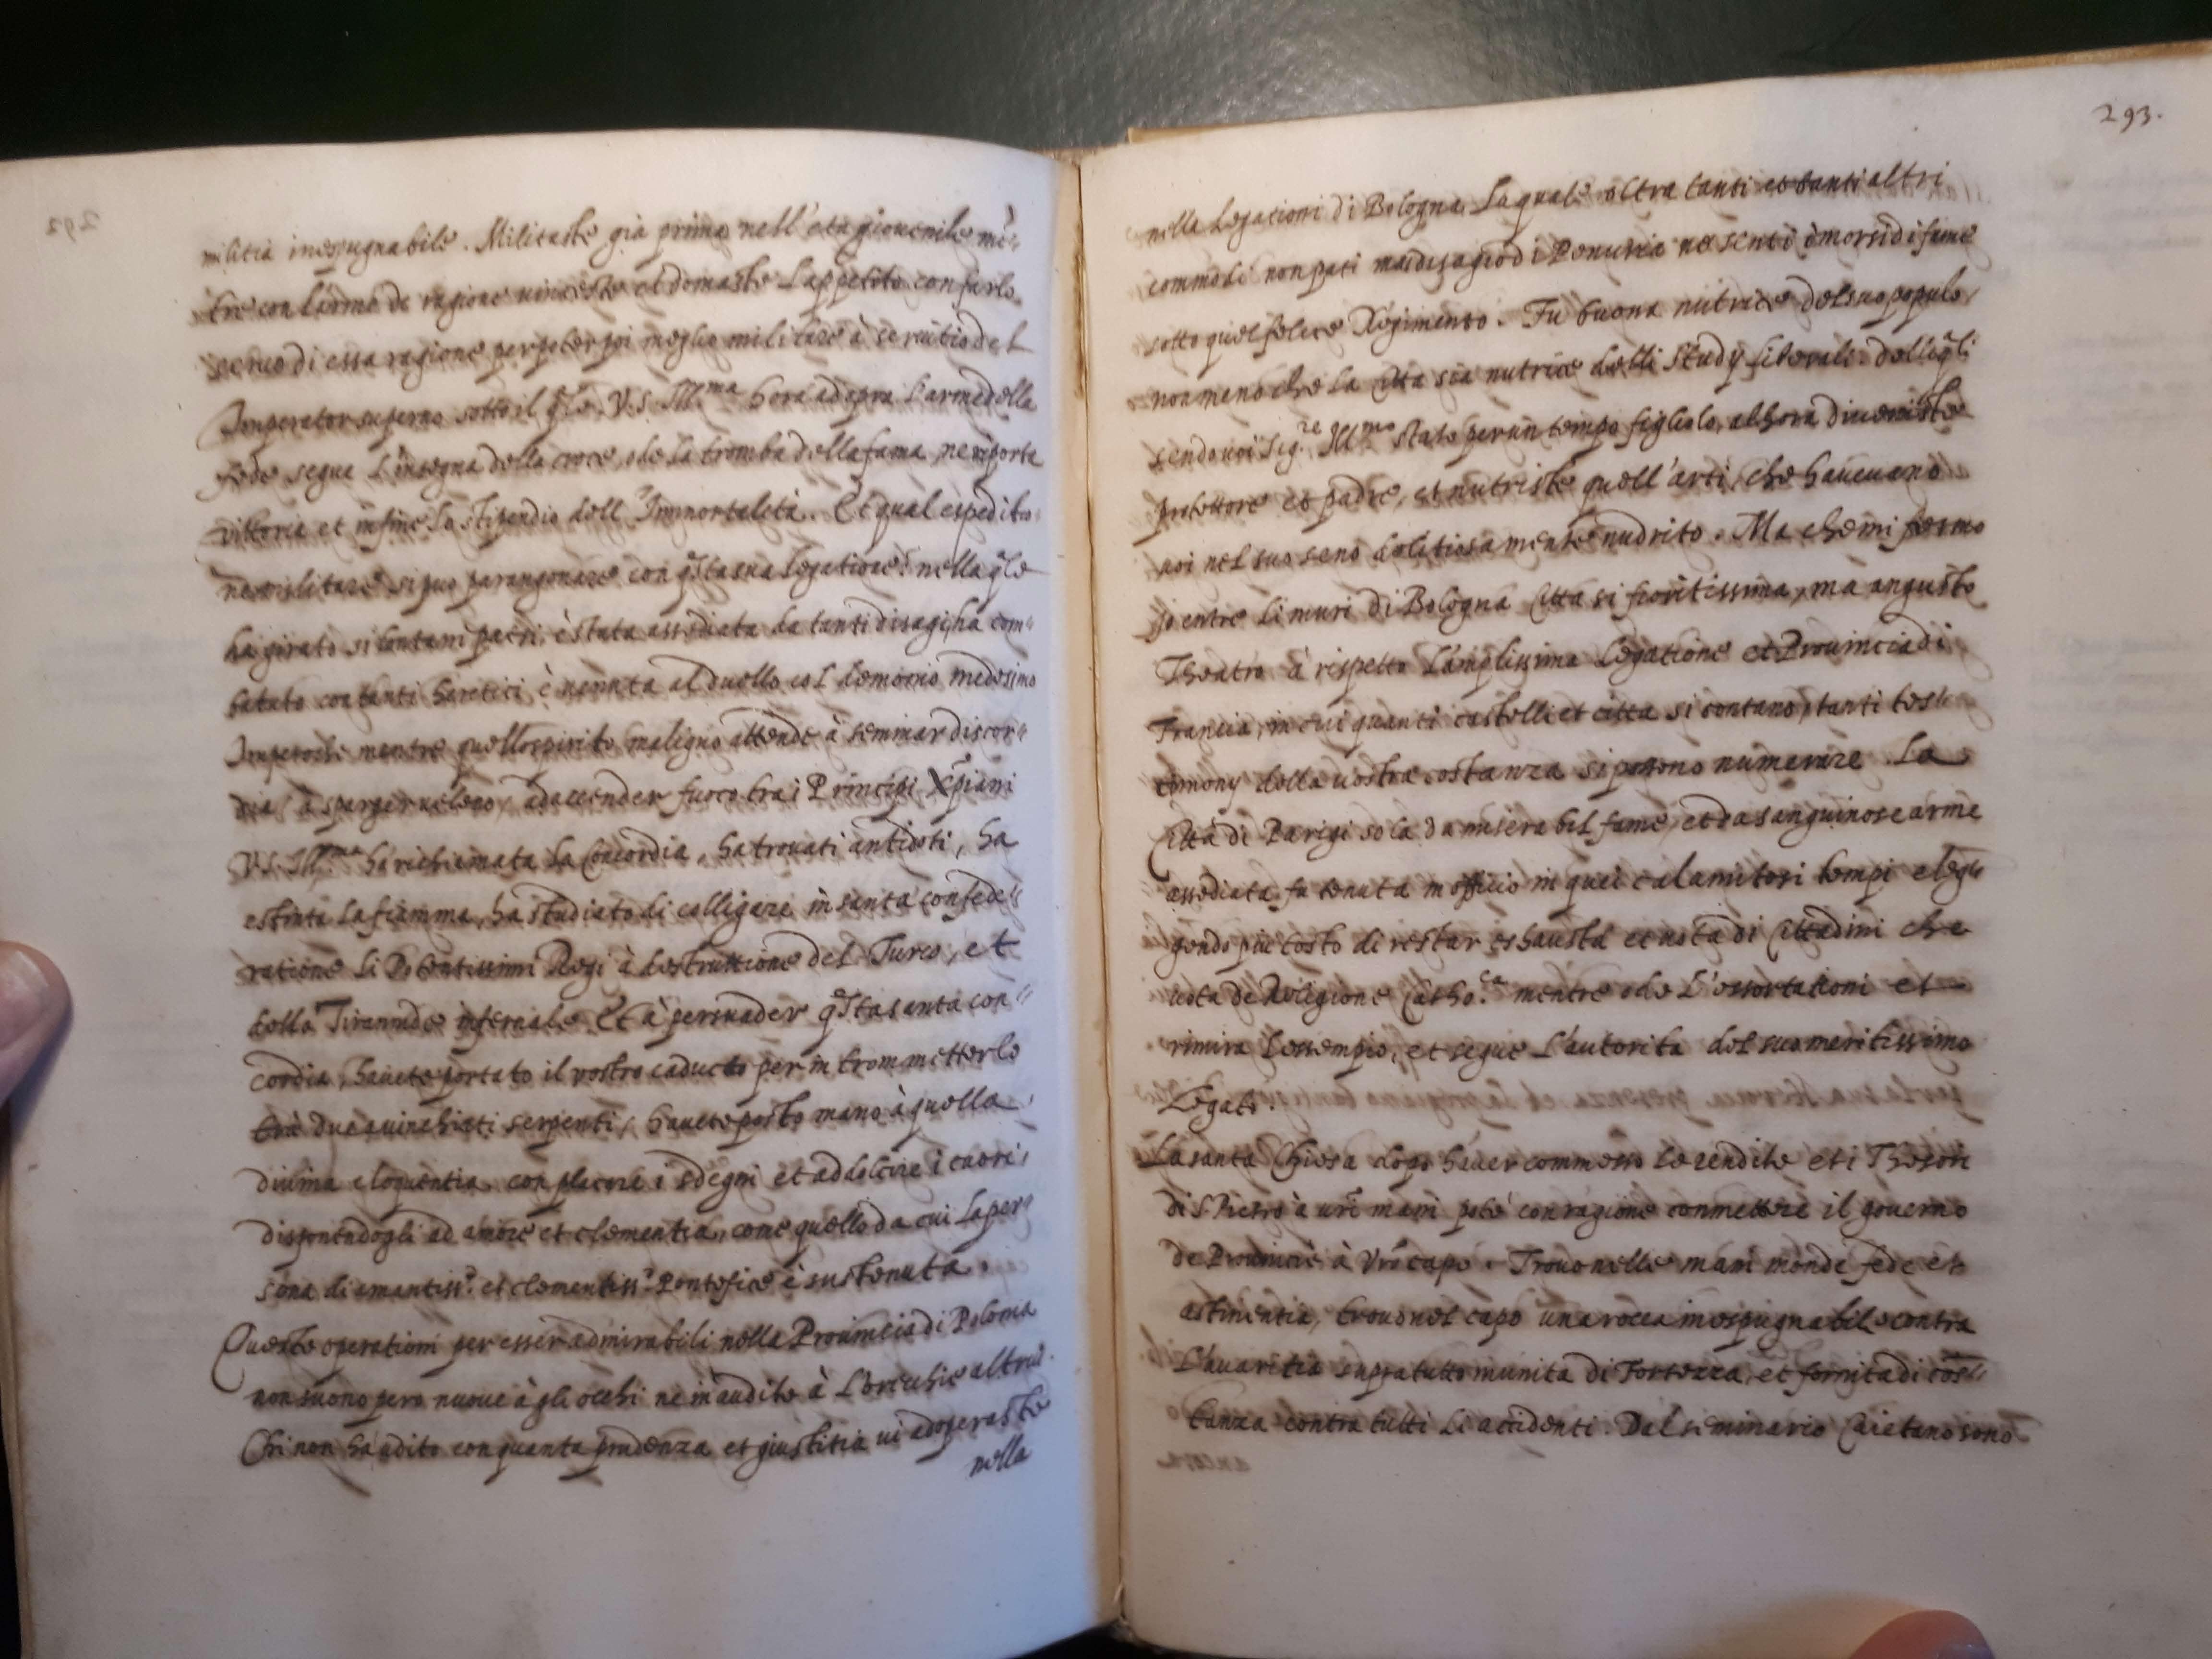 militia inespugnabile. Militaste già prima nell'età giovenile mē-
tre con l'arme de ragione vinceste et domaste l'appetito con farlo
servo di essa ragione per poter poi meglio militare à servitio del
Imperator superno sotto il q̃le V.S. Ill.ma hora adopra l'arme della
fede segue l'insegna della croce, ode la tromba della fama, ne riporta
vittoria et infine lo stipendio dell'Immortalità. Et qual espeditio-
ne militare si puo parangonare con q̃sta sua legatione? nella q̃le
ha girato si lontani paesi, è stata assediata da tanti disagi, ha com-
batuto con tanti heretici, è venuta al duello col demonio medesimo
Imperoche mentre quello spirito maligno attende à seminar discor-
dia, à sparger veleno, ad accender fuoco tra i Principi Xp̃iani
V.S. Ill.ma ha richiamata la Concordia, ha trovati antidoti, ha
estinta la fiamma, ha studiato di colligare in santa confede-
ratione li Potentissimi Regi à destruttione del Turco, et
della Tirannide infernale. Et à persuader q̃sta santa con-
cordia, havete portato il vostro caduceo per intrommetterlo
trà due avinchiati serpenti, havete posto mano à quella
divina eloquentia con placare i sdegni et addolcire i cuori
disponendogli ad amore et clementia, come quello da cui la per-
sona di amantiss.o et clementiss.o Pontefice è sustenuta.
Queste operationi per esser admirabili nella Provincia di Polonia
non suono pero nuove à gli occhi ne inaudite à l'orecchie altrui.
Chi non ha udito con quanta prudenza et giustitia vi adoperaste
nella
293.
nella Legationi di Bologna, la quale oltra tanti et tanti altri
commodi non pati mai disagio di Penuria ne senti i morsi di fame
sotto quel felice Regimento. Fu buona nutrice del suo populo
non meno che la Città sia nutrice delli study liberali: delle q̃li
sendo voi Sig.re Ill.mo stato per un tempo figliolo, alhora diveniste
protettore et padre, et nutriste quell'arti, che havevano
voi nel suo seno delitiosamente nudrito. Ma che mi fermo
io entro li muri di Bologna Città si fioritissima, ma angusto
Theatro à rispetto l'amplissima Legatione et Provincia di
Francia, in cui quanti castelli et citta si contano, tanti tes-
timony della vostra costanza si possono numerare. La
Città di Parigi sola da miserabil fame, et da sanguinose arme
assediata fu tenuta in officio in quei calamitosi tempi eleg-
gendo piu tosto di restar eshausta et vota di Cittadini che
vota de Religione Catho.ca mentre ode l'essortationi et
rimira l'essempio, et segue l'autorita del suo meritissimo
Legato.
La santa Chiesa dopo haver commesso le rendite et i Thesori
di S. Pietro à vr̃e mani poté con ragione conmettere il governo
de Provincie à vr̃o capo. Trovo nelle mani monde fede et
astinentia, trovo nel capo una rocca inespugnabile contra
l'avaritia sopra tutto munita di Fortezza, et fornita di cos-
tanza contra tutti li accidenti. Dal seminario Caietano sono